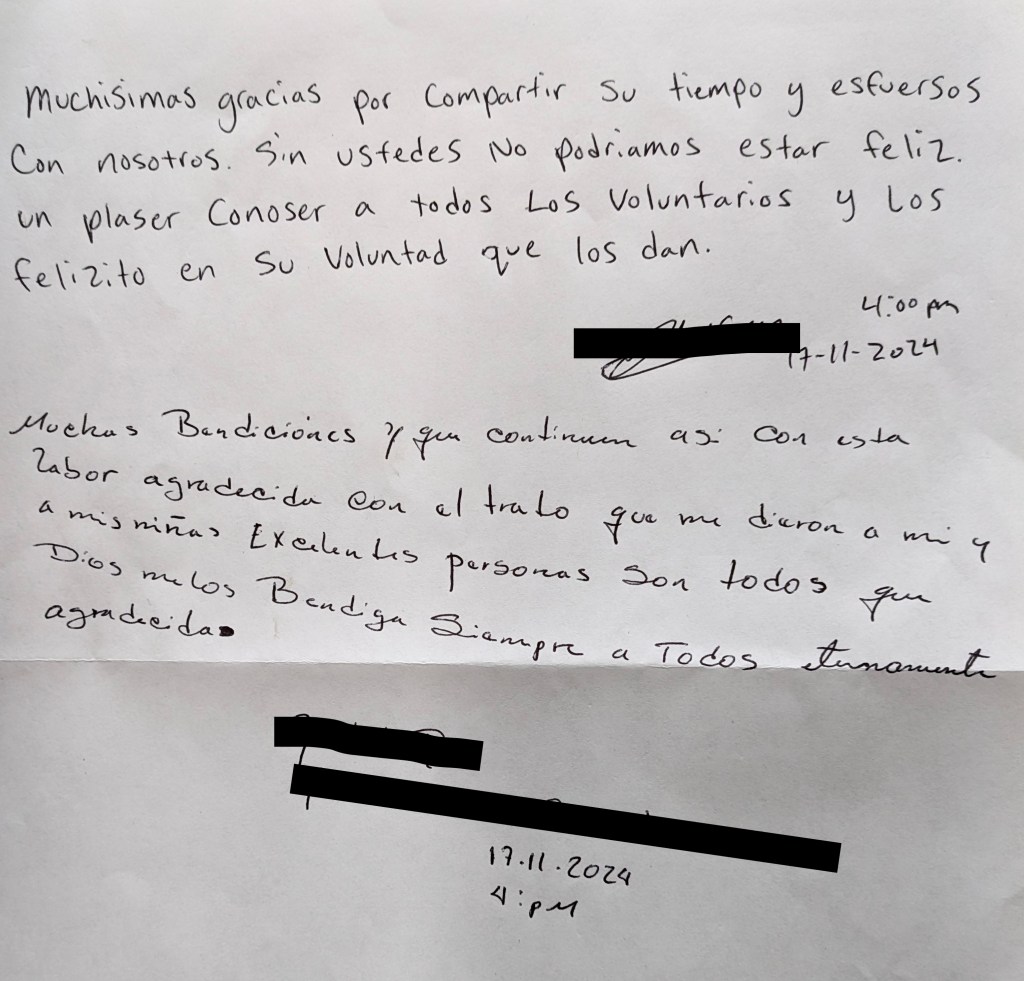 Muchisimas gracias por compartir su tiempo y esfuersos
Con nosotros. Sin ustedes No podriamos estar feliz.
un plaser Conoser a todos Los Voluntarios y Los
felizito en su Voluntad que los dan.
4:00 pm
17-11-2024
Muchas Bendiciones y que continuen asi con esta
labor agradecida con el trato que me dieron a mi y
a mis niñas Exelentes personas son todos que
Dios me los Bendiga Siempre a Todos eternamente
agradecida.
17.11.2024
4:pM